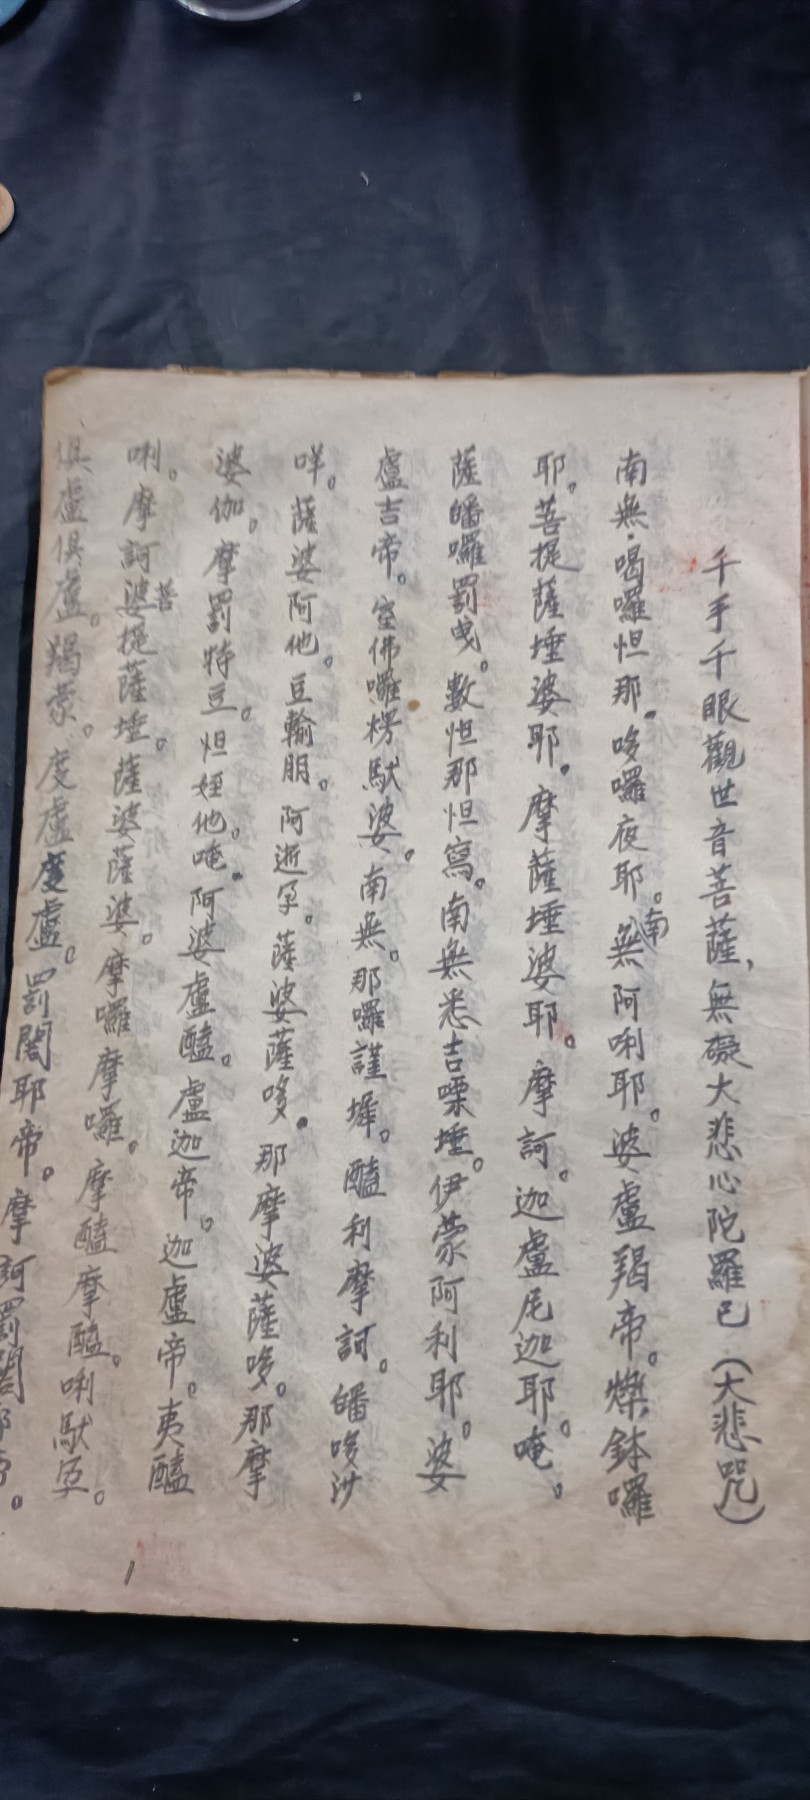 千手千眼觀世音菩薩，無礙大悲心陀羅已（大悲咒）
南無·喝囉怛那。哆囉夜耶。南無阿唎耶。婆盧羯帝。爍鉢囉
耶。菩提薩埵婆耶。摩薩埵婆耶。摩訶。迦盧尼迦耶。唵。
薩皤囉罰曳。數怛那怛寫。南無悉吉嘌埵。伊蒙阿利耶。婆
盧吉帝。室佛囉楞馱婆。南無。那囉謹墀。醯利摩訶。皤哆沙
咩。薩婆阿他。豆輸朋。阿逝孕。薩婆薩哆。那摩婆薩哆。那摩
婆伽。摩罰特豆。怛姪他。唵。阿婆盧醯。盧迦帝。迦盧帝。夷醯
唎。摩訶婆菩提薩埵。薩婆薩婆。摩囉摩囉。摩醯摩醯。唎馱孕。
俱盧俱盧。羯蒙。度盧度盧。罰闍耶帝。摩訶罰闍耶帝。
1